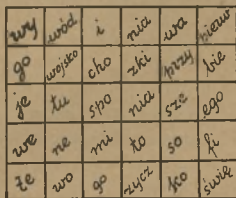 wy wód i nia wa pierw
go wojsko cho zki przy bie
je tu spo nia sze ego
we ne mi to so fi
że wo go życz ko świę